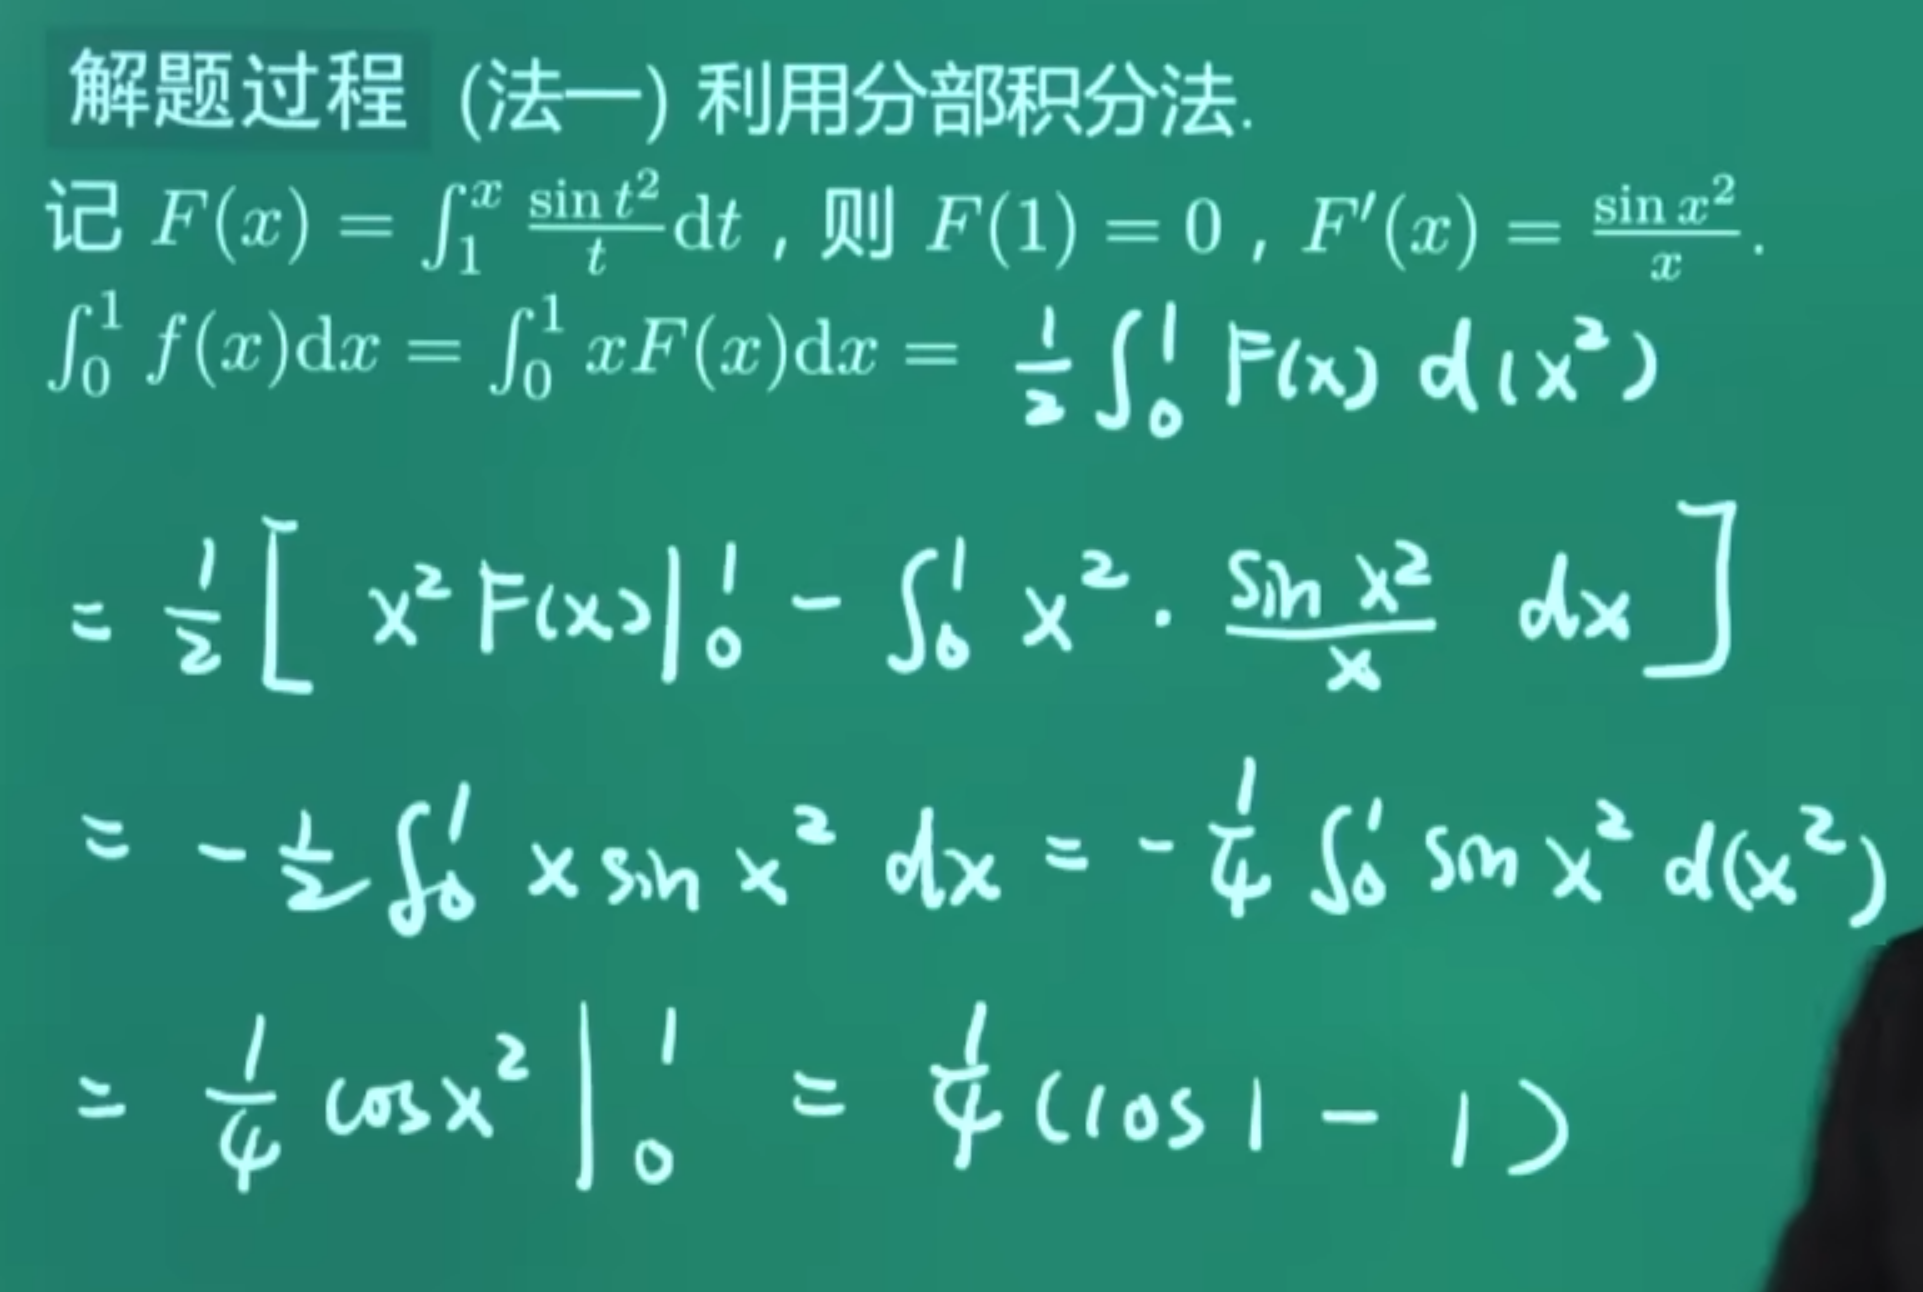 解题过程 (法一) 利用分部积分法.
记 F(x) = ∫₁ˣ (sin t²)/t dt , 则 F(1) = 0 , F′(x) = (sin x²)/x .
∫₀¹ f(x)dx = ∫₀¹ xF(x)dx = 1/2 ∫₀¹ F(x) d(x²)
= 1/2 [ x² F(x)|₀¹ − ∫₀¹ x² · (sin x²)/x dx ]
= − 1/2 ∫₀¹ x sin x² dx = − 1/4 ∫₀¹ sin x² d(x²)
= 1/4 cos x² |₀¹ = 1/4 (cos 1 − 1)